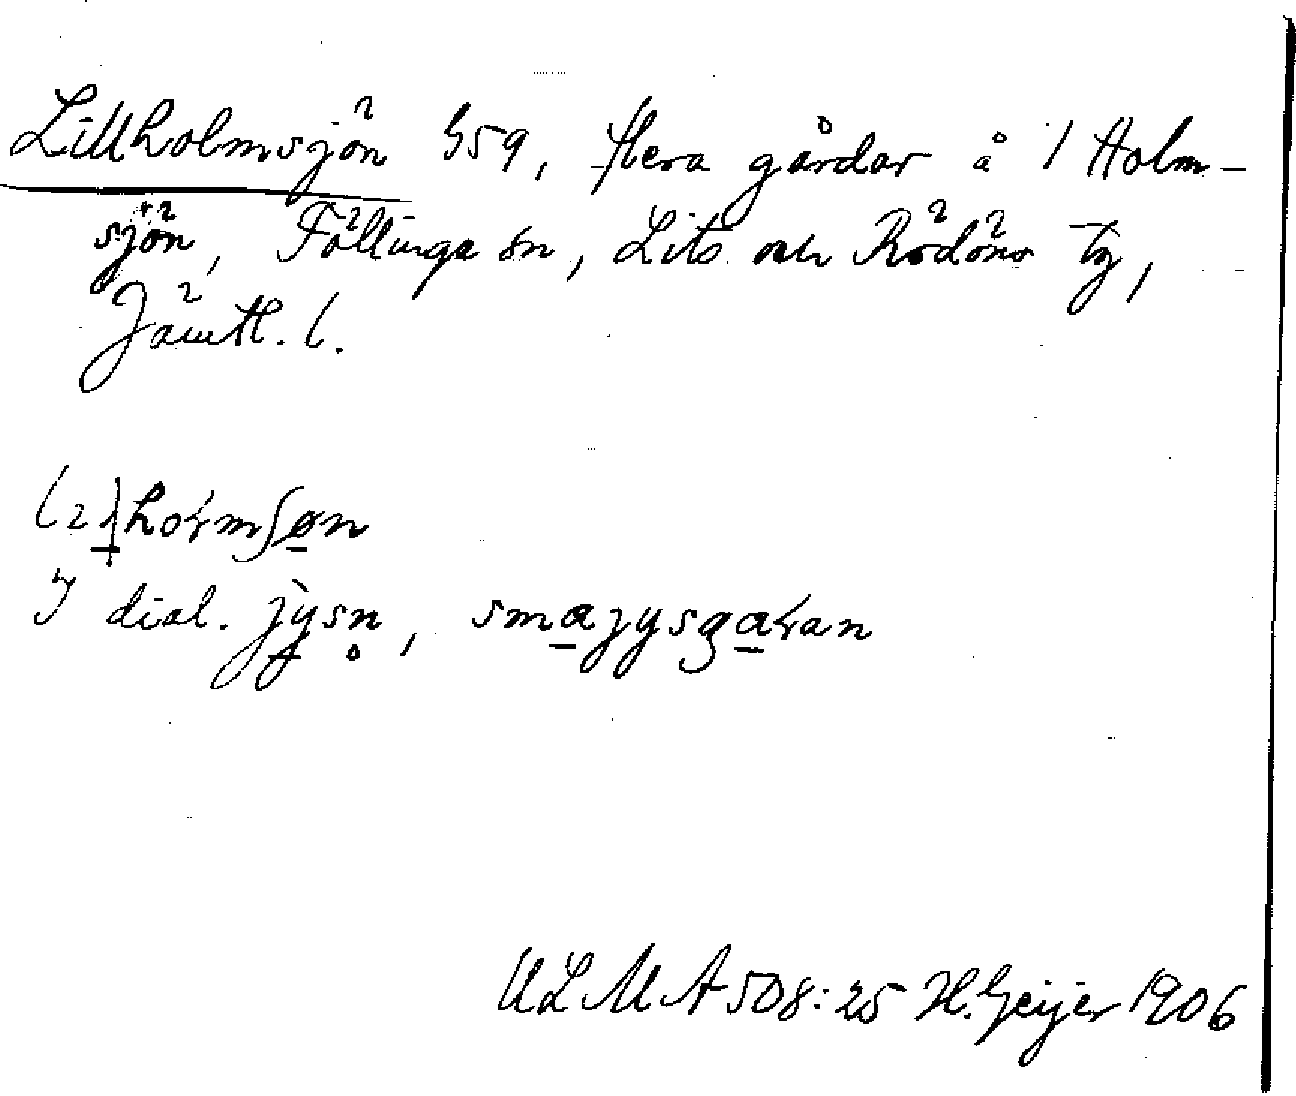 Lillholmsjön 359, flera gårdar å 1 Holm-
sjön, Föllinge sn, Lits och Rödöns tg,
Jämtl. l.
I dial. jysn, smajysgaran
ULMA 508:25 H. Geijer 1906